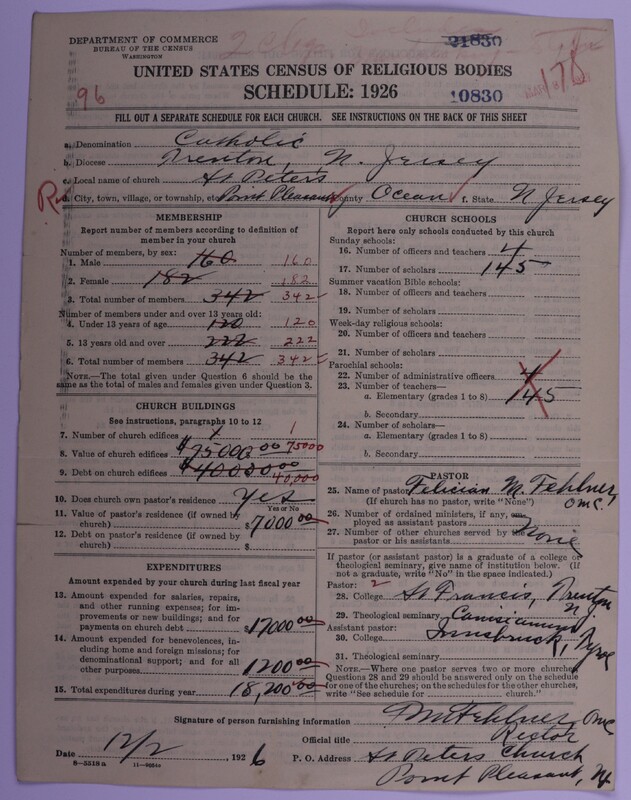 DEPARTMENT OF COMMERCE
BUREAU OF THE CENSUS
WASHINGTON
21830
UNITED STATES CENSUS OF RELIGIOUS BODIES
SCHEDULE: 1926
10830
178
96
FILL OUT A SEPARATE SCHEDULE FOR EACH CHURCH. SEE INSTRUCTIONS ON THE BACK OF THIS SHEET
a. Denomination Catholic
b. Diocese Trenton, N. Jersey
c. Local name of church St Peters
d. City, town, village, or township, etc. Point Pleasant County Ocean f. State N Jersey
MEMBERSHIP
Report number of members according to definition of member in your church
Number of members by sex:
1. Male 160 160
2. Female 182 182
3. Total number of members 342 342
Number of members under and over 13 years old:
4. Under 13 years of age 120 120
5. 13 years old and over 222 222
6. Total number of members 342 342
NOTE.—The total given under Question 6 should be the
same as the total of males and females given under Question 3.
CHURCH BUILDINGS
See instructions, paragraphs 10 to 12
7. Number of church edifices 1 1
8. Value of church edifices $75000.00 75000
9. Debt on church edifices $40000.00 40,000
10. Does church own pastor's residence Yes
Yes or No
11. Value of pastor's residence (if owned by
church) $7000.00
12. Debt on pastor's residence (if owned by
church) $
EXPENDITURES
Amount expended by your church during last fiscal year
13. Amount expended for salaries, repairs,
and other running expenses; for im-
provements or new buildings; and for
payments on church debt $17000.00
14. Amount expended for benevolences, in-
cluding home and foreign missions; for
denominational support; and for all
other purposes 1200.00
15. Total expenditures during year 18,200.00
CHURCH SCHOOLS
Report here only schools conducted by this church
Sunday schools:
16. Number of officers and teachers 4
17. Number of scholars 145
Summer vacation Bible schools:
18. Number of officers and teachers
19. Number of scholars
Week-day religious schools:
20. Number of officers and teachers
21. Number of scholars
Parochial schools:
22. Number of administrative officers 4
23. Number of teachers—
a. Elementary (grades 1 to 8) 145
b. Secondary
24. Number of scholars—
a. Elementary (grades 1 to 8)
b. Secondary
PASTOR
25. Name of pastor Felician M Fehlner, OMC.
(If church has no pastor, write "None")
26. Number of ordained ministers, if any, em-
ployed as assistant pastors
27. Number of other churches served by the
pastor or his assistants None
If pastor (or assistant pastor) is a graduate of a college or
theological seminary, give name of institution below. (If
not a graduate, write "No" in the space indicated.)
Pastor: 2
28. College St Francis, Trenton N J.
29. Theological seminary
Assistant pastor:
30. College Innsbruck,
31. Theological seminary
NOTE.—Where one pastor serves two or more churches
Questions 28 and 29 should be answered only on the schedule
for one of the churches; on the schedules for the other churches,
write "See schedule for church."
Signature of person furnishing information FM Fehlner, OMC
Official title Rector
Date 12/2, 1926 P. O. Address St Peters Church
Point Pleasant, NJ
8-5518 a